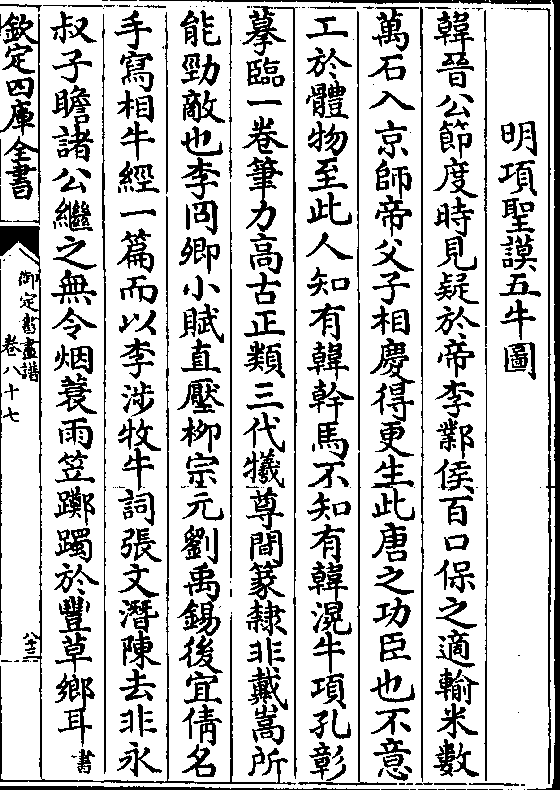 明項聖謨五牛圖
韓晉公節度時見疑於帝李鄴侯百口保之適輸米數
萬石入京師帝父子相慶得更生此唐之功臣也不意
工於體物至此人知有韓幹馬不知有韓滉牛項孔彰
摹臨一卷筆力高古正類三代犧尊間篆隸非戴嵩所
能勁敵也李冏卿小賦直壓柳宗元劉禹錫後宜倩名
手寫相牛經一篇而以李涉牧牛詞張文潛陳去非永
叔子瞻諸公繼之無令烟蓑雨笠躑躅於豐草鄉耳書
欽定四庫全書
御定書畫譜
卷八十七
八十三